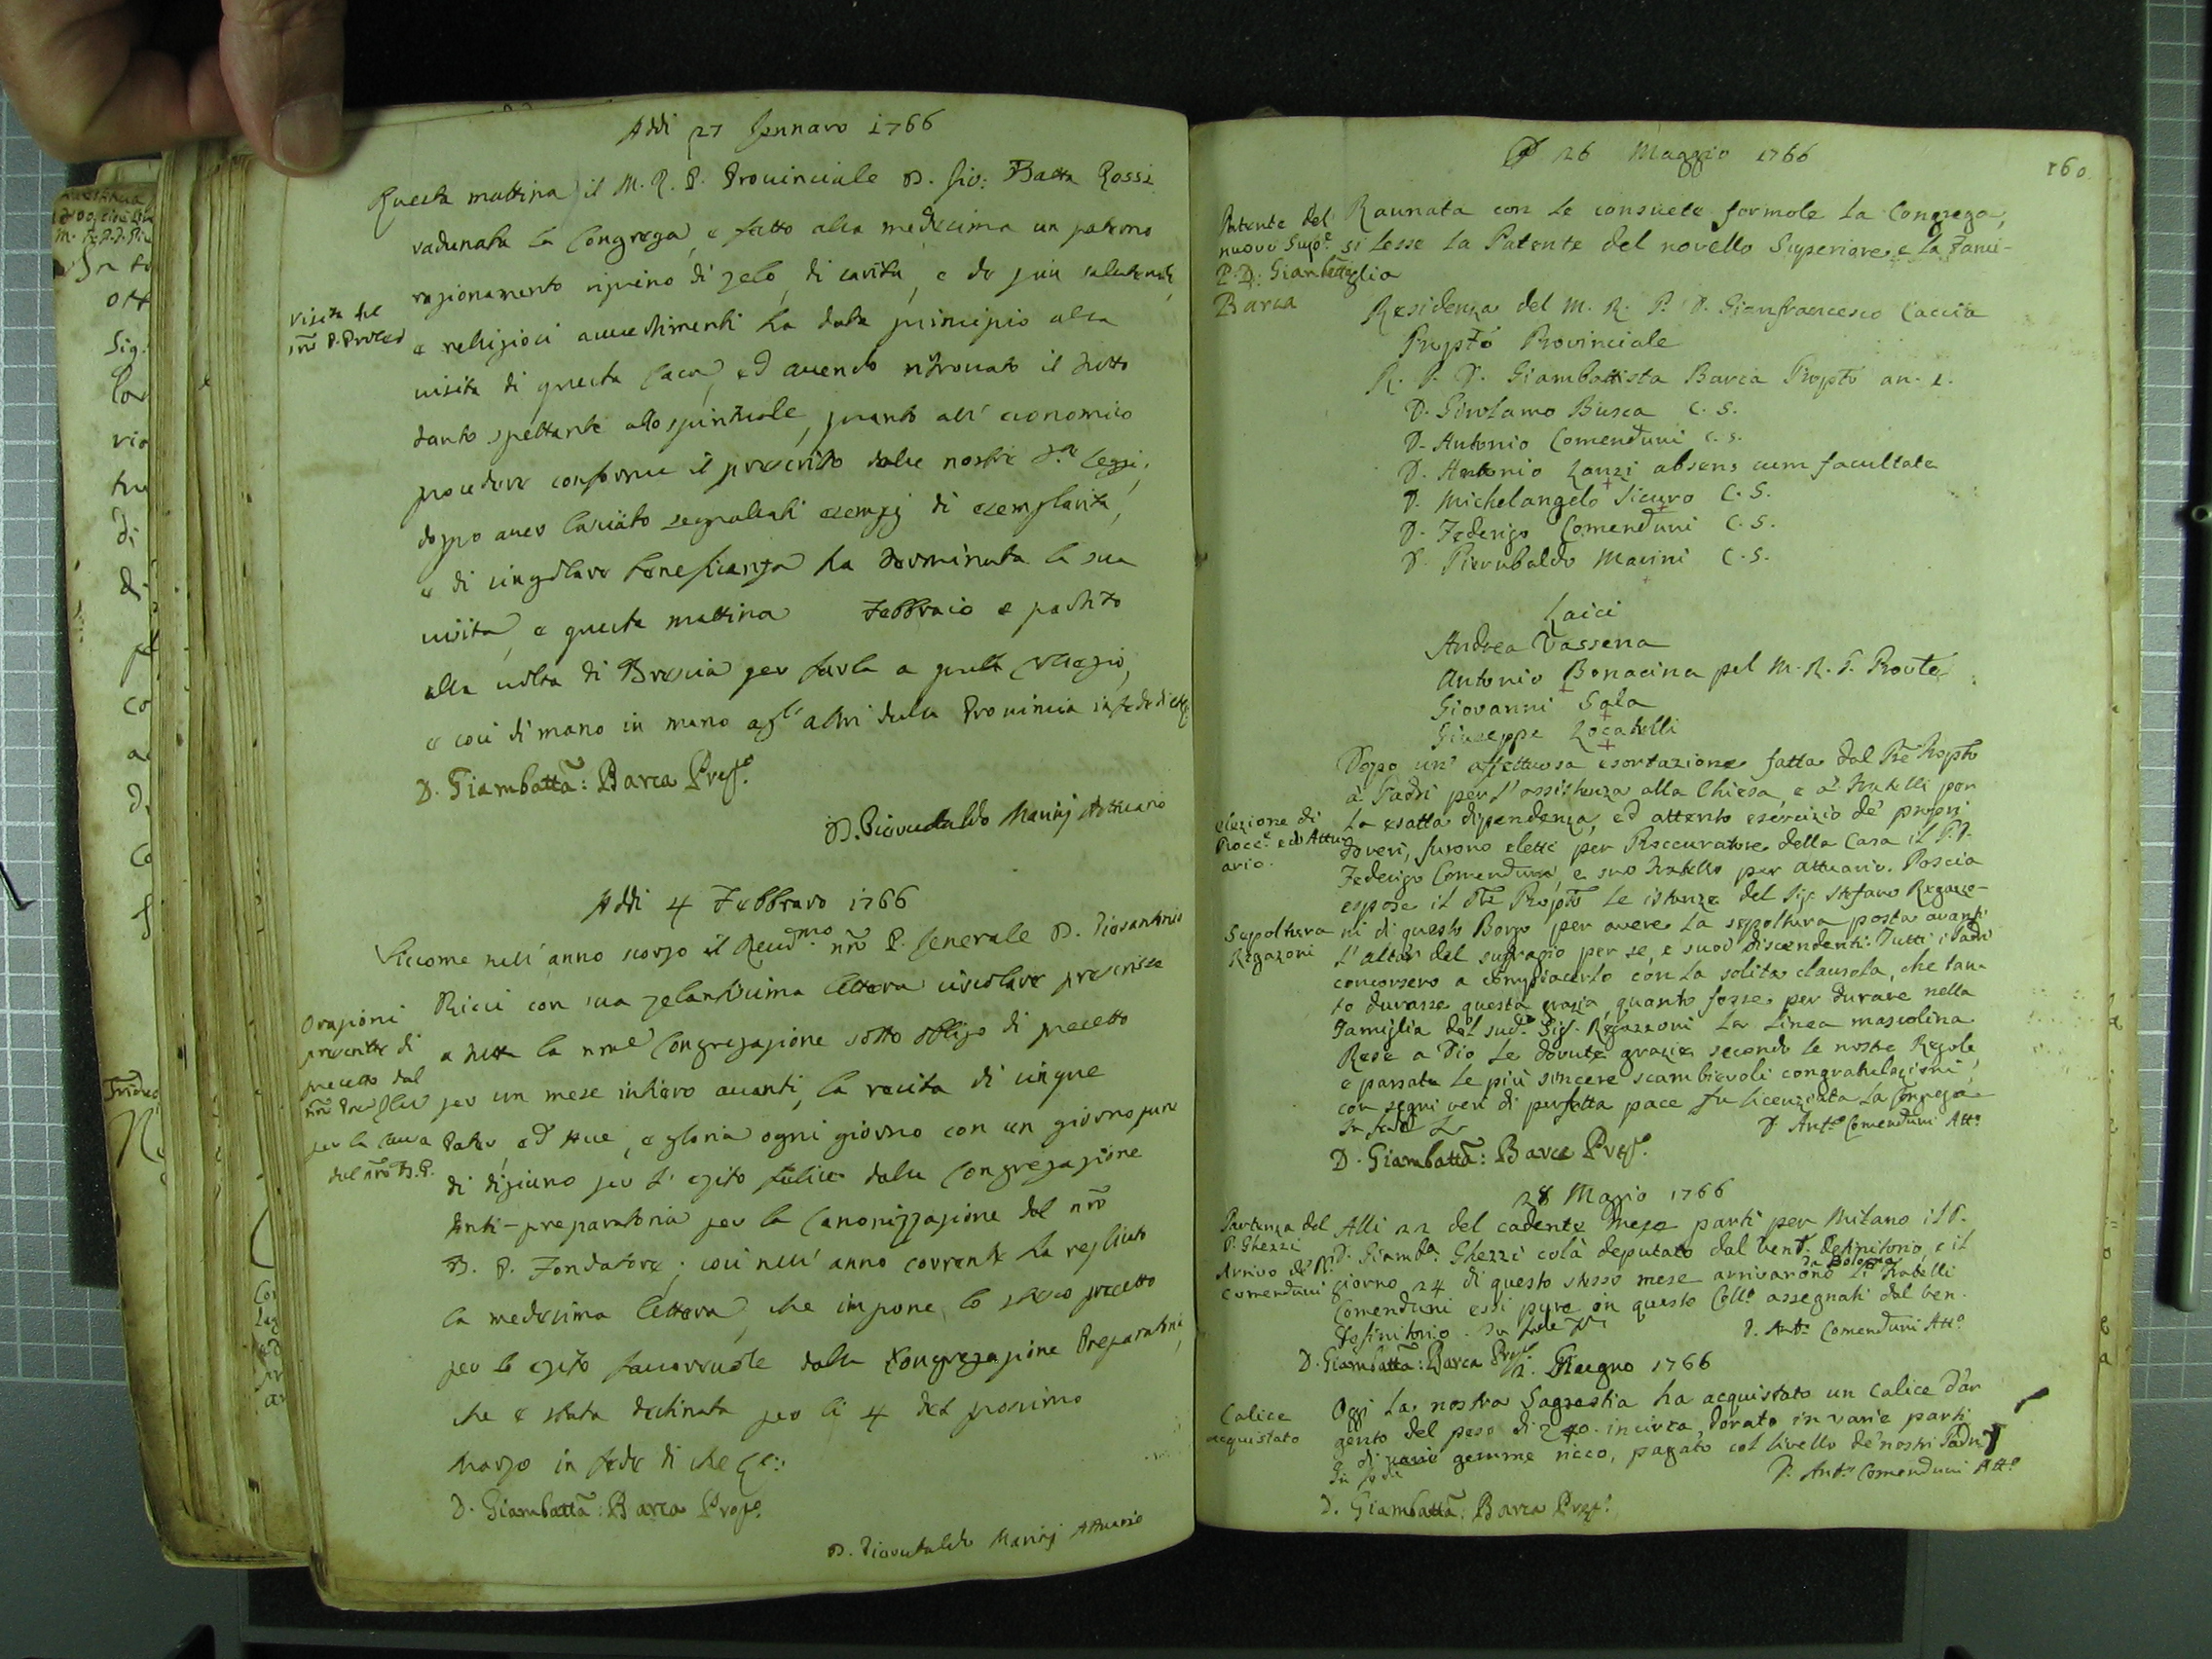 Addi 27 Gennaro 1766
Questa mattina il M. R. P. Provinciale D. Gio: Batta Rossi
radunata la Congrega, e fatto alla medesima un paterno
ragionamento ripieno di zelo, di carità, e de più salutevoli,
visita del
nro P. Provle
e religiosi avvertimenti ha dato principio alla
visita di questa Casa, ed avendo ritrovato il tutto
tanto spettante allo spirituale, quanto all' economico
procedere conforme il prescritto dalle nostre Ste Leggi,
doppo aver lasciato segnalati esempj di esemplarità,
e di singolare beneficenza ha terminata la sua
visita, e questa mattina Febbraio e partito
alla volta di Brescia per farla a quel Collegio,
e così di mano in mano agl' altri della Provincia in fede di che
D. Giambatta: Barca Prepo.
D. Pierubaldo Marinj Attuario
Addi 4 Febbraro 1766
Siccome nell' anno scorso il Reudmo. nro P. Generale D. Giosantonio
Orazioni
prescritte di
precetto dal
per la causa
del nro B. P.
Ricci con sua zelantissima lettera circolare prescrisse
a tutta la nra Congregazione sotto obbligo di precetto
per un mese intiero avanti, la recita di cinque
Pater, ed Ave, e gloria ogni giorno con un giorno pure
di digiuno per l' esito felice della Congregazione
Anti-preparatoria per la Canonizzazione del nro
B. P. Fondatore; così nell' anno corrente ha replicato
la medesima lettera, che impone lo stesso precetto
per lo esito favorevole dalla Congregazione Preparatoria,
che è stata destinata per li 4 del prossimo
Marzo in fede di che &c:
D. Giambatta: Barca Prepo.
D. Pierubaldo Marinj Attuario
160
A 26 Maggio 1766
Patente del
nuovo Supe.
P. D. Giambatta
Barca
Raunata con le consuete formole la Congrega,
si lesse la Patente del novello Superiore e la Fami-
glia
Residenza del M. R. P. D. Gianfrancesco Caccia
Prepto Provinciale
R. P. D. Giambattista Barca Prepto an. 1.
D. Girolamo Busca C. S.
D. Antonio Comenduni C. S.
D. Antonio Lanzi absens cum facultate
D. Michelangelo Sicuro C. S.
D. Federigo Comenduni C. S.
D. Pierubaldo Marini C. S.
Laici
Andrea Vassena
Antonio Bonacina pel M. R. P. Prov.le
Giovanni Sala
Giuseppe Locatelli
Dopo un' affettuosa esortazione fatta dal Pre Prepto
à Padri per l' assistenza alla Chiesa, e a' Fratelli per
elezione di
Procce. ed Attu-
ario.
la esatta dipendenza, ed attento esercizio de' proprj
doveri, furono eletti per Proccuratore della Casa il P. D.
Federigo Comenduni, e suo Fratello per Attuario. Poscia
espose il Pre Prepto le istanze del Sig. Stefano Regazzo-
Sepoltura
Regazoni
ni di questo Borgo per avere la seppoltura posta avanti
l' altar del suffragio per se, e suoi discendenti. Tutti i Padri
concorsero a compiacerlo con la solita clausola, che tan-
to durasse questa grazia, quanto fosse per durare nella
Famiglia del sud. Sig. Regazzoni la linea mascolina
Rese a Dio le dovute grazie secondo le nostre Regole,
e passate le più sincere scambievoli congratulazioni,
con segni veri di perfetta pace fu licenziata la Congrega
In fede &c
D. Anto. Comenduni Atto.
D. Giambatta: Barca Prepo.
28 Magio 1766
Partenza del
P. Ghezzi
Arrivo de' PP.
Comenduni
Alli 22 del cadente mese partì per Milano il P.
D. Giamba. Ghezzi colà deputato dal ven. Definitorio, e il
giorno 24 di questo stesso mese arrivarono da Bologna li Fratelli
Comenduni essi pure in questo Collo. assegnati dal ven.
Definitorio. In fede
D. Anto. Comenduni Atto.
D. Giambatta: Barca Prepo.
2. Giugno 1766
Calice
acquistato
Oggi la nostra Sagrestia ha acquistato un Calice d'ar
gento del peso di 40. incirca, dorato in varie parti
e di varie gemme ricco, pagato col livello de' nostri Padri
In fede
D. Anto. Comenduni Atto.
D. Giambatta: Barca Prepo.